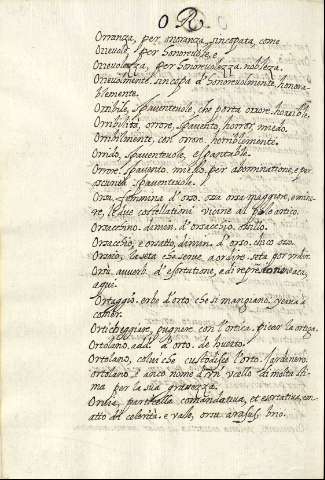 O R
Orranza, per onoranza, sincopata, come
Orrevole, per honorevole,
Orrevolezza, per honorevolezza, nobleza.
Orrevolmente sincopa d'honorevolmente, honora-
blemente.
Orribile, spaventevole, che porta orrore. horrible.
Orribilità, orrore, spavento, horror, miedo.
Orribilmente, con orrore. horriblemente.
Orrido, spaventevole, espantable.
Orrore. spavento. miedo. per abominatione, e per
oscurità spaventevole.
Orsa, femmina d'orso. ossa orsa maggiore, e mino-
re, le due costellationi vicine al polo artico.
Orsacchino. dimin. d'orsacchio.
Orsacchio, e orsatto, dimin. d'orso.
Orsoio, la seta che serve a ordire. seta por urdir.
Orsù. avverb. d'esortatione, e di
Ortaggio. erbe d'orto che si mangiano. yerva a
comer.
Ortichegiare, pugnere con l'ortica. picar la ortiga.
Ortolano, add. d'orto. de huerto.
Ortolano, colui che custodisce l'orto. Jardinero.
ortolano è anco nome d'un ucello di molta sti-
ma per la sua grassezza.
Orsù, particella comandativa, et esortativa, con
atto di celerità. e vale, orsu